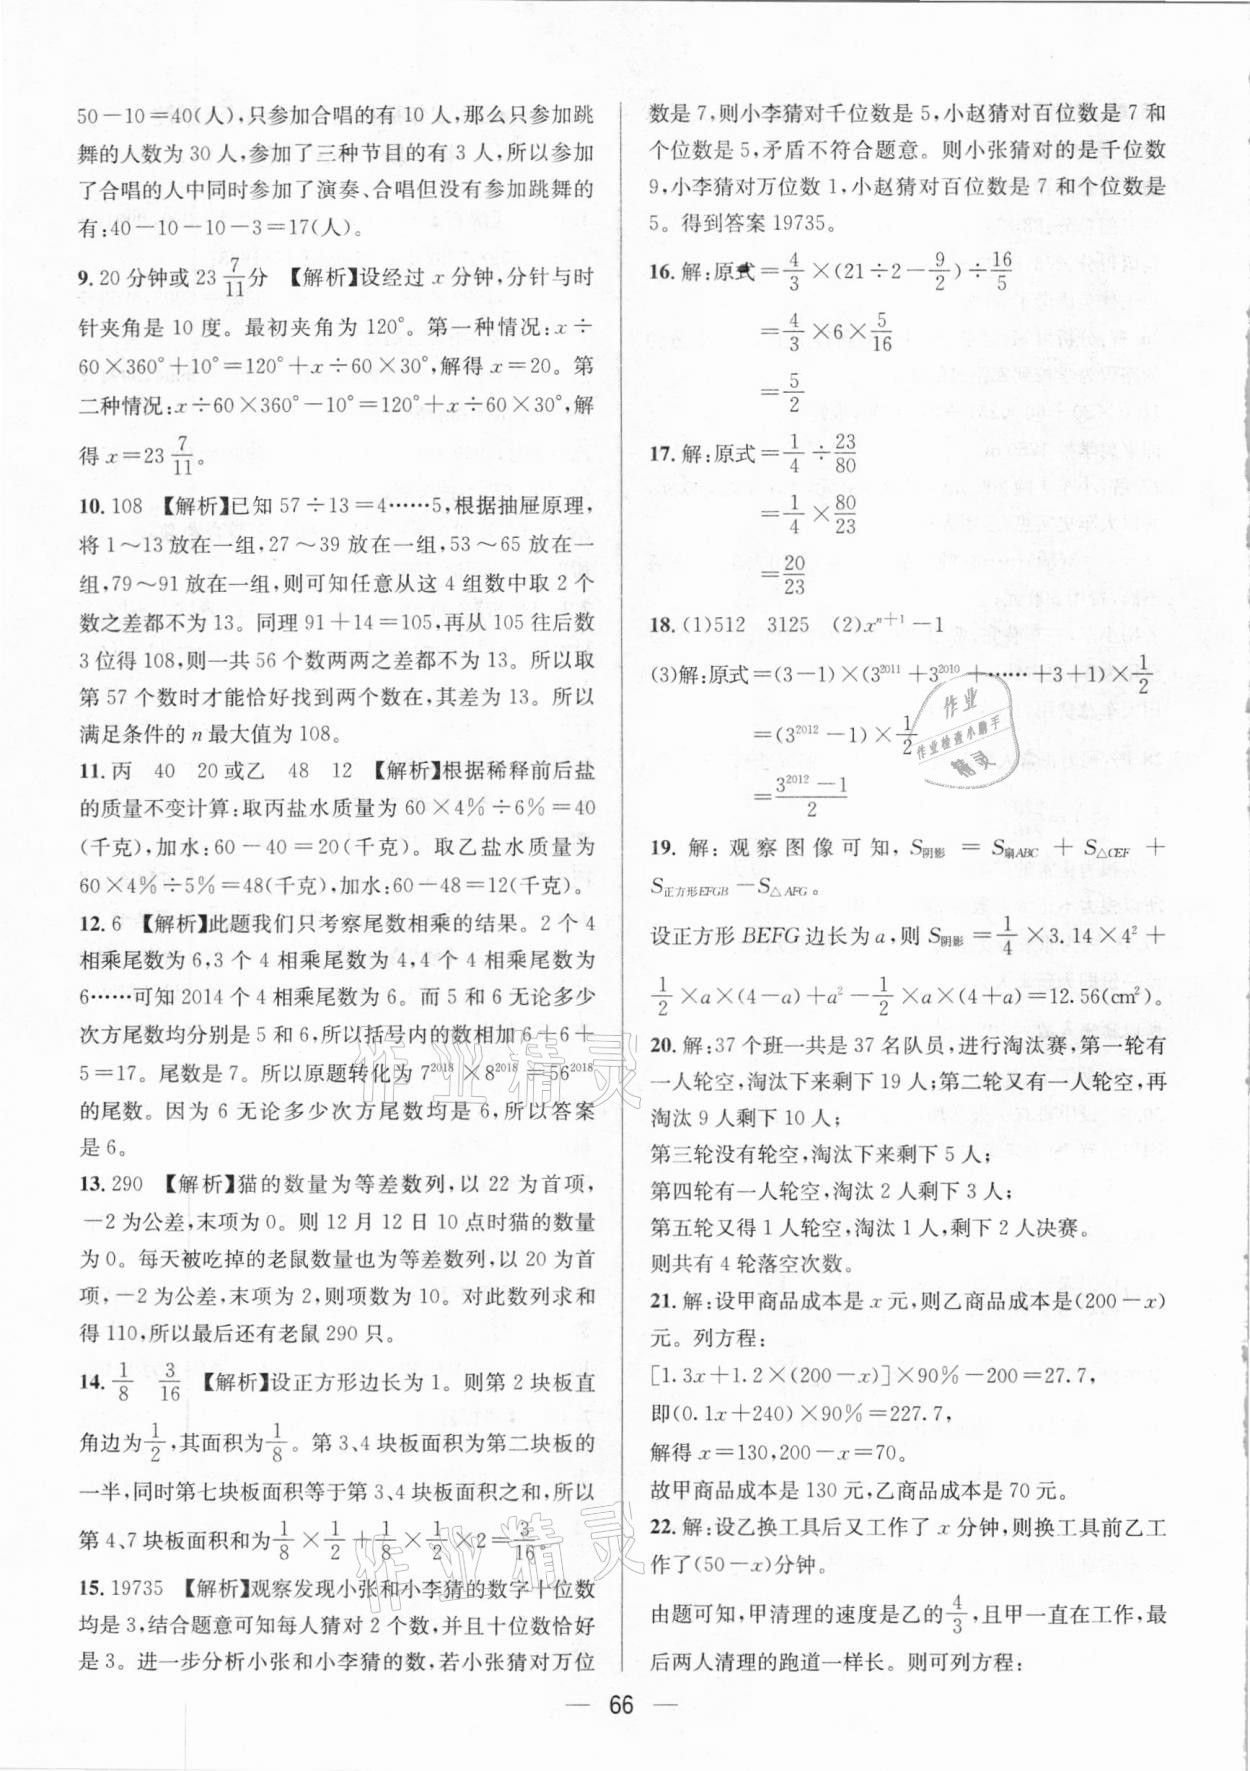 50－10＝40(人),只参加合唱的有 10 人,那么只参加跳
舞的人数为 30 人,参加了三种节目的有 3 人,所以参加
了合唱的人中同时参加了演奏、合唱但没有参加跳舞的
有:40－10－10－3＝17(人)。
9. 20 分钟或 23 7/11 分 【解析】设经过 x 分钟,分针与时
针夹角是 10 度。最初夹角为 120°。第一种情况:x÷
60×360°＋10°＝120°＋x÷60×30°,解得 x＝20。第
二种情况:x÷60×360°－10°＝120°＋x÷60×30°,解
得 x＝23 7/11。
10. 108 【解析】已知 57÷13＝4……5,根据抽屉原理,
将 1～13 放在一组,27～39 放在一组,53～65 放在一
组,79～91 放在一组,则可知任意从这 4 组数中取 2 个
数之差都不为 13。同理 91＋14＝105,再从 105 往后数
3 位得 108,则一共 56 个数两两之差都不为 13。所以取
第 57 个数时才能恰好找到两个数在,其差为 13。所以
满足条件的 n 最大值为 108。
11. 丙 40 20 或乙 48 12 【解析】根据稀释前后盐
的质量不变计算:取丙盐水质量为 60×4%÷6%＝40
(千克),加水:60－40＝20(千克)。取乙盐水质量为
60×4%÷5%＝48(千克),加水:60－48＝12(千克)。
12. 6 【解析】此题我们只考察尾数相乘的结果。2 个 4
相乘尾数为 6,3 个 4 相乘尾数为 4,4 个 4 相乘尾数为
6……可知 2014 个 4 相乘尾数为 6。而 5 和 6 无论多少
次方尾数均分别是 5 和 6,所以括号内的数相加 6＋6＋
5＝17。尾数是 7。所以原题转化为 7^2018×8^2018＝56^2018
的尾数。因为 6 无论多少次方尾数均是 6,所以答案
是 6。
13. 290 【解析】猫的数量为等差数列,以 22 为首项,
－2 为公差,末项为 0。则 12 月 12 日 10 点时猫的数量
为 0。每天被吃掉的老鼠数量也为等差数列,以 20 为首
项,－2 为公差,末项为 2,则项数为 10。对此数列求和
得 110,所以最后还有老鼠 290 只。
14. 1/8 3/16 【解析】设正方形边长为 1。则第 2 块板直
角边为 1/2,其面积为 1/8。第 3、4 块板面积为第二块板的
一半,同时第七块板面积等于第 3、4 块板面积之和,所以
第 4、7 块板面积和为 1/8×1/2＋1/8×1/2×2＝3/16。
15. 19735 【解析】观察发现小张和小李猜的数字十位数
均是 3,结合题意可知每人猜对 2 个数,并且十位数恰好
是 3。进一步分析小张和小李猜的数,若小张猜对万位
数是 7,则小李猜对千位数是 5,小赵猜对百位数是 7 和
个位数是 5,矛盾不符合题意。则小张猜对的是千位数
9,小李猜对万位数 1,小赵猜对百位数是 7 和个位数是
5。得到答案 19735。
16. 解:原式＝4/3×(21÷2－9/2)÷16/5
＝4/3×6×5/16
＝5/2
17. 解:原式＝1/4÷23/80
＝1/4×80/23
＝20/23
18. (1)512 3125 (2)x^(n＋1)－1
(3)解:原式＝(3－1)×(3^2011＋3^2010＋……＋3＋1)×1/2
＝(3^2012－1)×1/2
＝(3^2012－1)/2
19. 解:观察图像可知,S阴影＝S扇ABC＋S△CEF＋
S正方形EFGB－S△AFG。
设正方形 BEFG 边长为 a,则 S阴影＝1/4×3.14×4²＋
1/2×a×(4－a)＋a²－1/2×a×(4＋a)＝12.56(cm²)。
20. 解:37 个班一共是 37 名队员,进行淘汰赛,第一轮有
一人轮空,淘汰下来剩下 19 人;第二轮又有一人轮空,再
淘汰 9 人剩下 10 人;
第三轮没有轮空,淘汰下来剩下 5 人;
第四轮有一人轮空,淘汰 2 人剩下 3 人;
第五轮又得 1 人轮空,淘汰 1 人,剩下 2 人决赛。
则共有 4 轮落空次数。
21. 解:设甲商品成本是 x 元,则乙商品成本是(200－x)
元。列方程:
[1.3x＋1.2×(200－x)]×90%－200＝27.7,
即(0.1x＋240)×90%＝227.7,
解得 x＝130,200－x＝70。
故甲商品成本是 130 元,乙商品成本是 70 元。
22. 解:设乙换工具后又工作了 x 分钟,则换工具前乙工
作了(50－x)分钟。
由题可知,甲清理的速度是乙的 4/3,且甲一直在工作,最
后两人清理的跑道一样长。则可列方程:
— 66 —
作业精灵
作业精灵
作业
作业检查小助手
精灵